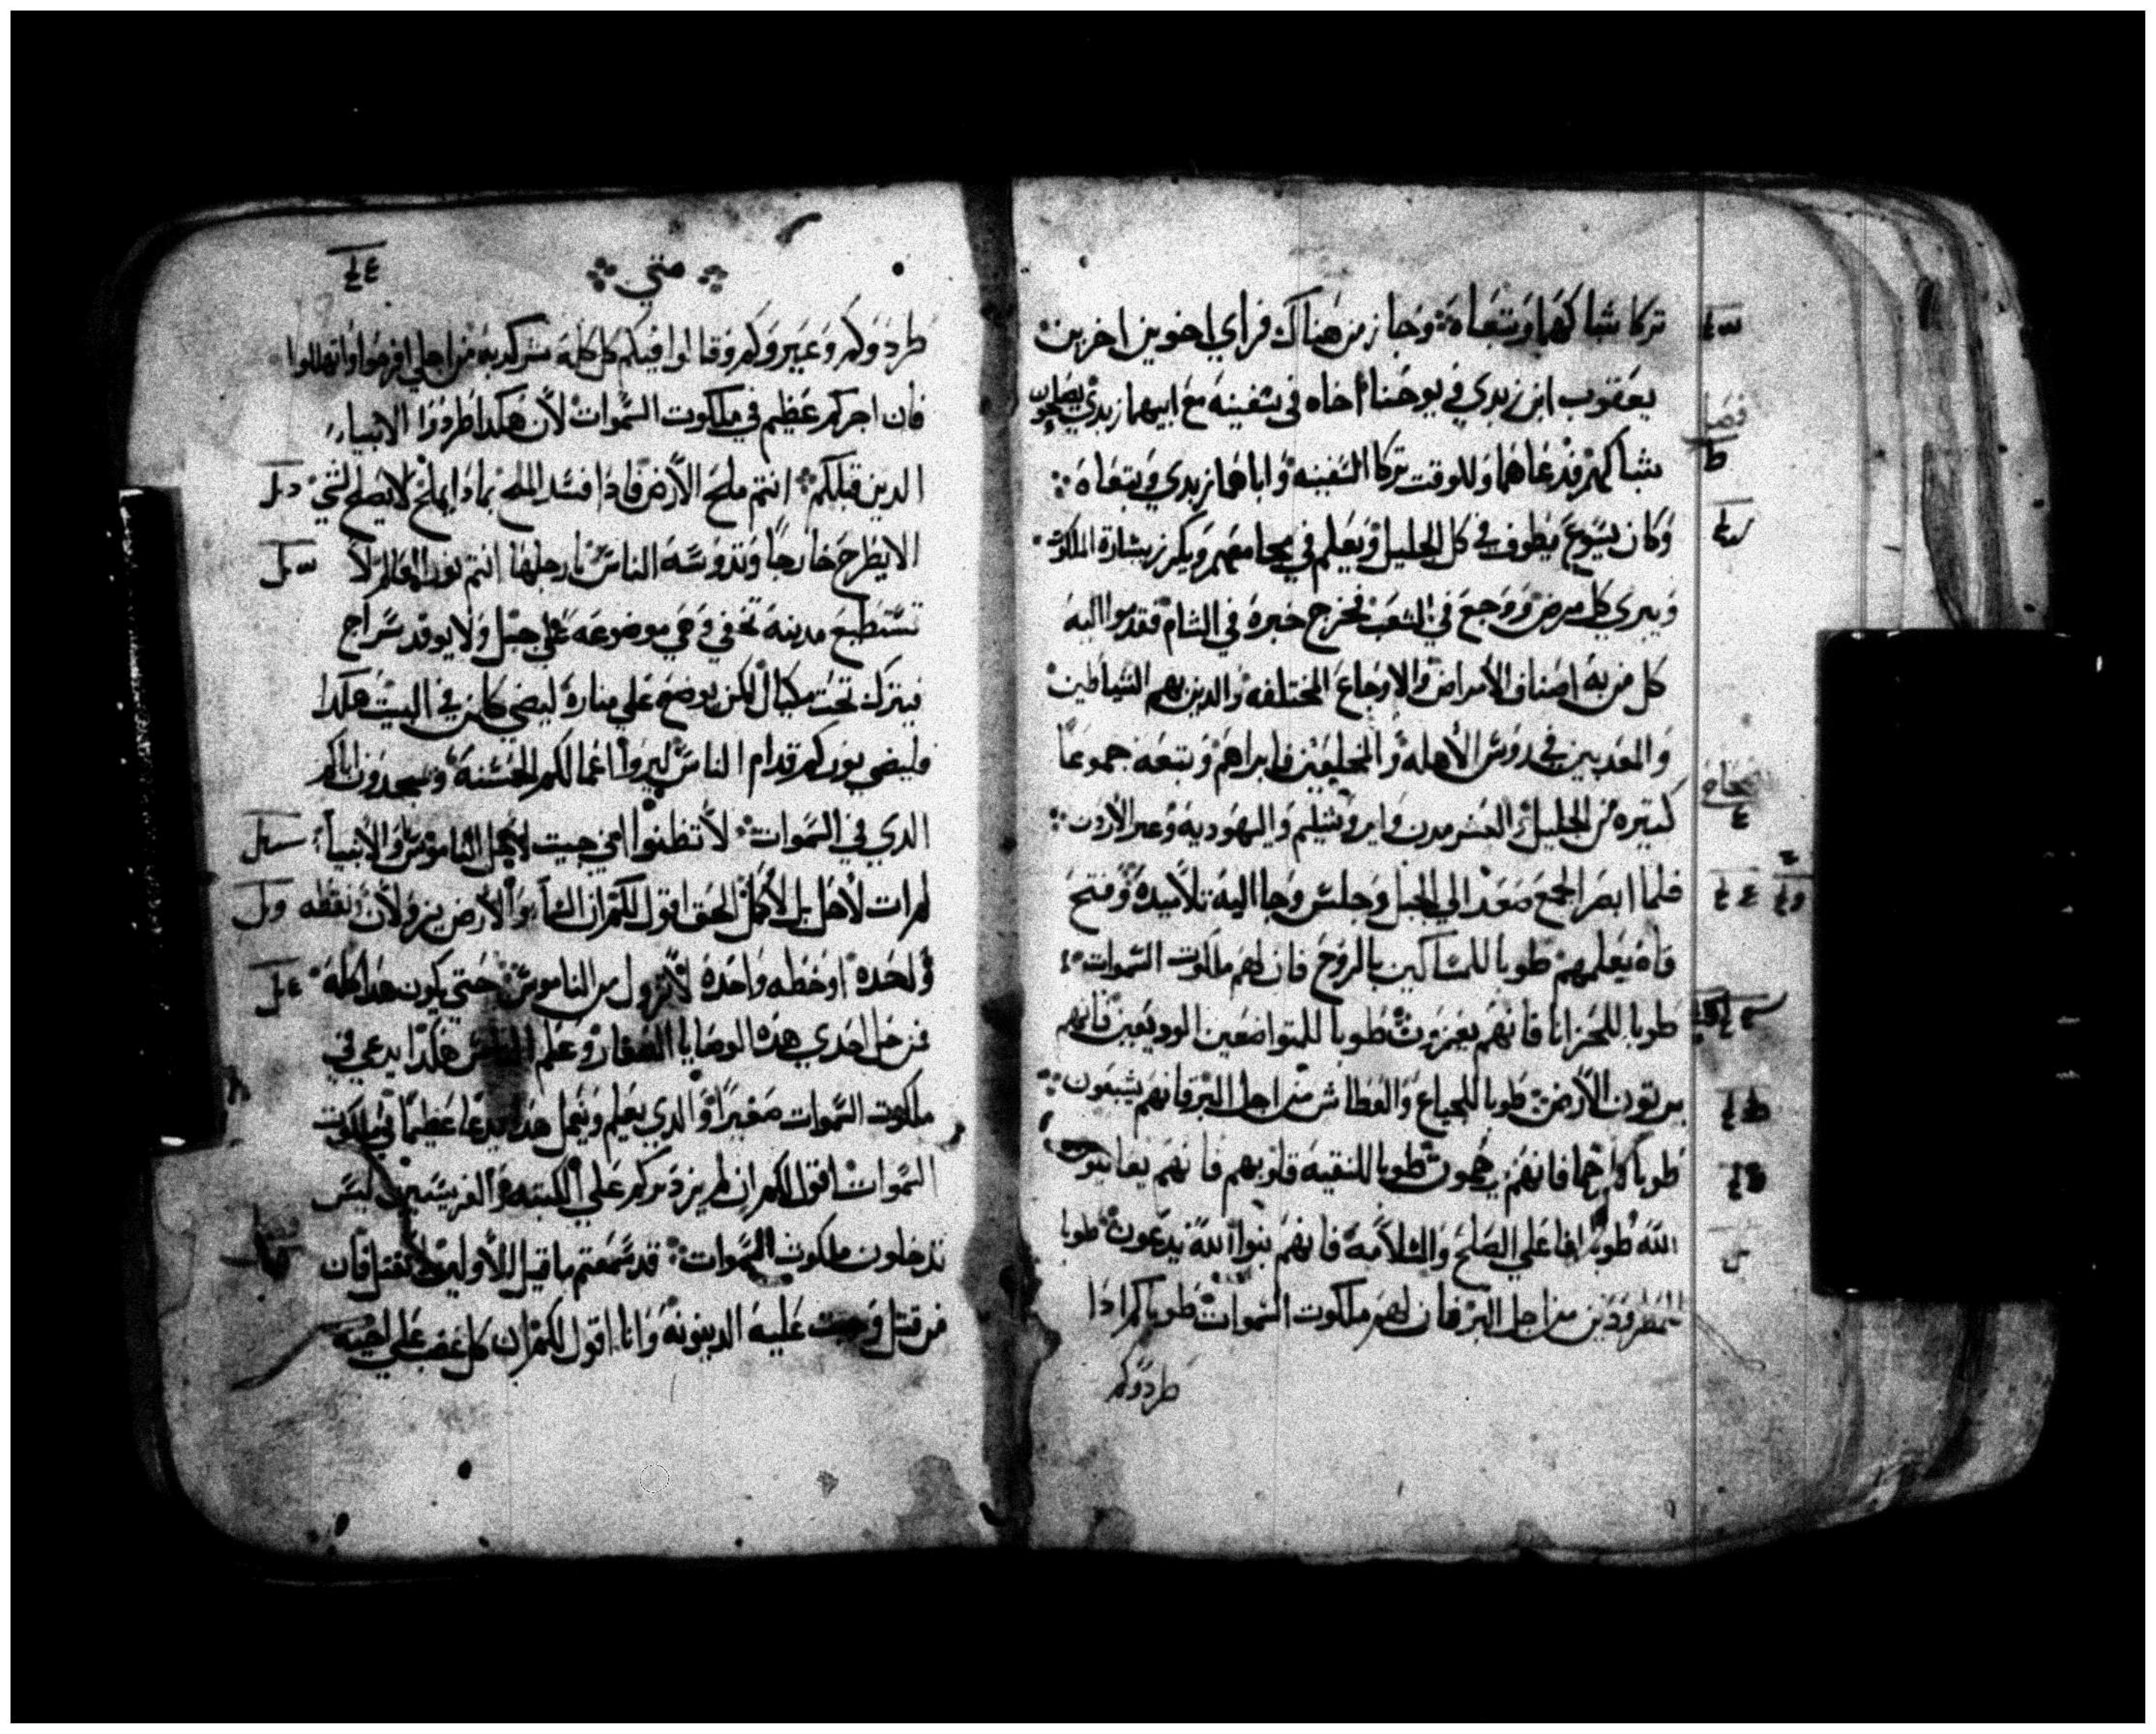 تركا شباكهما وتبعاه وجاز من هناك فراي اخوين اخرين
يعقوب ابن زبدي ويوحنا اخاه في سفينه مع ابيهما زبدي يصلحون
شباكهم فدعاهما وللوقت تركا السفينه واباهما زبدي وتبعاه
وكان يسوع يطوف في كل الجليل ويعلم في مجامعهم ويكرز ببشارة الملكوت
ويبري كل مرض ووجع في الشعب فخرج خبره في الشام فقدموا اليه
كل من به اصناف الأمراض والاوجاع المختلفه والدين بهم الشياطين
والمعدبين في روس الأهله والمخلعين فابراهم وتبعه جموعا
كتيره من الجليل والعشر مدن وايروشليم واليهودية وعبر الأردن
فلما ابصر الجمع صعد الي الجبل وجلس وجا اليه تلاميده وفتح
فاه يعلمهم طوبا للمساكين بالروح فان لهم ملكوت السموات
طوبا للحزانا فانهم يعزون طوبا للمتواضعين الوديعين فانهم
يرتون الأرض طوبا للجياع والعطاش من اجل البر فانهم يشبعون
طوبا للرحما فانهم يرحمون طوبا للنقيه قلوبهم فانهم يعاينون
الله طوبا لفاعلي الصلح والسلامه فانهم بنوا الله يدعون طوبا
للمطرودين من اجل البر فان لهم ملكوت السموات طوباكم ادا
طردوكم
متي
طردوكم وعيروكم وقالوا فيكم كل كلمة كدبه من اجلي افرحوا واتهللوا
فان اجركم عظيم في ملكوت السموات لأن هكدا طردوا الانبياء
الدين قبلكم انتم ملح الأرض فادا فسد الملح بمادا يملح لا يصلح لشي
الا يطرح خارجا وتدوسه الناس بارجلها انتم نور العالم لا
تستطيع مدينه تخفي وهي موضوعه علي جبل ولا يوقد سراج
فيترك تحت مكيال لكن يوضع علي مناره ليضي كلمن في البيت هكدا
فليضي نوركم قدام الناس ليروا اعمالكم الحسنه ويمجدون اباكم
الدي في السموات لا تظنوا انني جيت لأحل الناموس والأنبيا
لم ات لأحل بل لأكمل الحق اقول لكم ان السما والأرض يزولان نقطه
واحده او خطه واحده لا تزول من الناموس حتي يكون هدا كله
فمن حل احدي هده الوصايا الصغار وعلم الناس هكدا يدعي في
ملكوت السموات صغيرا والدي يعلم ويعمل هدا يدعا عظيما في ملكوت
السموات اقول لكم ان لم يزد بركم علي الكتبه والفريسيين ليس
تدخلون ملكوت السموات قد سمعتم ما قيل للأولين لا تقتل فان
من قتل وجبت عليه الدينونه وانا اقول لكم ان كل غضب علي اخيه